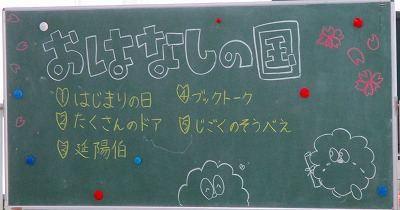 おはなしの国
①はじまりの日
②たくさんのドア
③延陽伯
④ブックトーク
⑤じごくのそうべえ